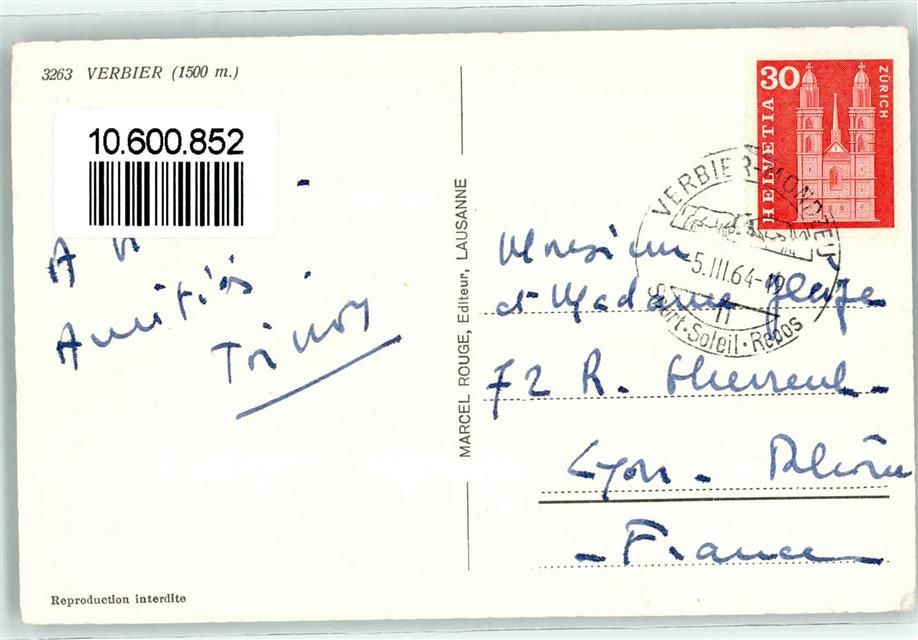 3263 VERBIER (1500 m.)
10.600.852
Amitiés.
MARCEL ROUGE, Editeur, LAUSANNE
30
HELVETIA
ZÜRICH
VERBIER-MONDZEU
-5.III.64-19
Sport·Soleil·Repos
Monsieur
et Madame
72 R. Chevreul-
Lyon - Rhône
- France
Reproduction interdite